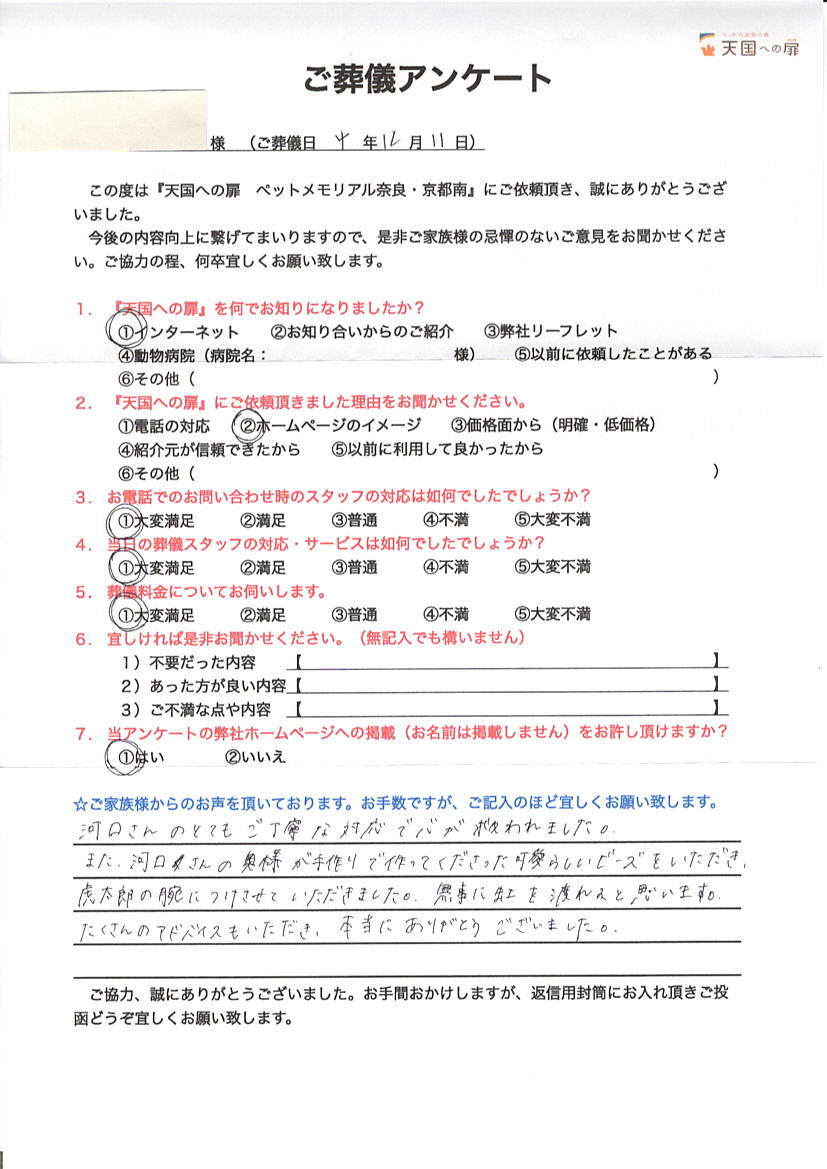 ペットの訪問火葬
天国への扉
ご葬儀アンケート
様 (ご葬儀日 年12月11日)
この度は『天国への扉 ペットメモリアル奈良・京都南』にご依頼頂き、誠にありがとうござ
いました。
今後の内容向上に繋げてまいりますので、是非ご家族様の忌憚のないご意見をお聞かせくださ
い。ご協力の程、何卒宜しくお願い致します。
1.『天国への扉』を何でお知りになりましたか?
①インターネット ②お知り合いからのご紹介 ③弊社リーフレット
④動物病院(病院名: 様) ⑤以前に依頼したことがある
⑥その他( )
2.『天国への扉』にご依頼頂きました理由をお聞かせください。
①電話の対応 ②ホームページのイメージ ③価格面から(明確・低価格)
④紹介元が信頼できたから ⑤以前に利用して良かったから
⑥その他( )
3. お電話でのお問い合わせ時のスタッフの対応は如何でしたでしょうか?
①大変満足 ②満足 ③普通 ④不満 ⑤大変不満
4. 当日の葬儀スタッフの対応・サービスは如何でしたでしょうか?
①大変満足 ②満足 ③普通 ④不満 ⑤大変不満
5. 葬儀料金についてお伺いします。
①大変満足 ②満足 ③普通 ④不満 ⑤大変不満
6. 宜しければ是非お聞かせください。(無記入でも構いません)
1)不要だった内容 【 】
2)あった方が良い内容【 】
3)ご不満な点や内容 【 】
7. 当アンケートの弊社ホームページへの掲載(お名前は掲載しません)をお許し頂けますか?
①はい ②いいえ
☆ご家族様からのお声を頂いております。お手数ですが、ご記入のほど宜しくお願い致します。
河口さんのとてもご丁寧な対応で心が救われました。
また、河口さんの奥様が手作りで作ってくださった可愛らしいビーズをいただき、
虎太郎の腕につけさせていただきました。無事に虹を渡れると思います。
たくさんのアドバイスもいただき、本当にありがとうございました。
ご協力、誠にありがとうございました。お手間おかけしますが、返信用封筒にお入れ頂きご投
函どうぞ宜しくお願い致します。